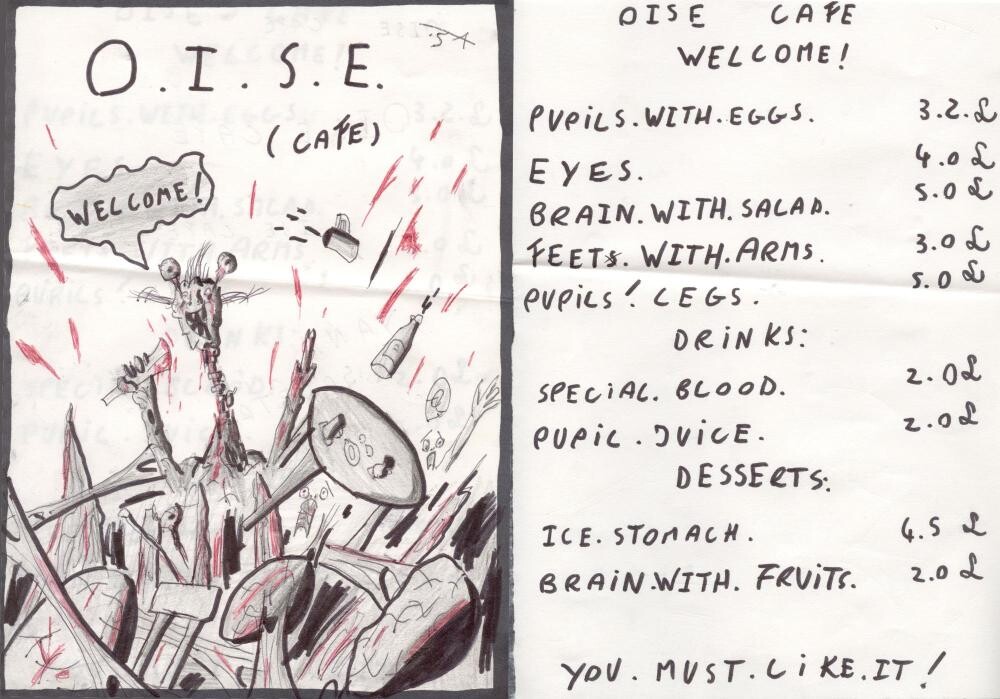 O.I.S.E.
(CAFE)
WELCOME!
OISE CAFE
WELCOME!
PUPILS.WITH.EGGS. 3.2.£
EYES. 4.0 £
BRAIN.WITH.SALAD. 5.0 £
FEETS.WITH.ARMS. 3.0 £
PUPILS! LEGS. 5.0 £
DRINKS:
SPECIAL BLOOD. 2.0£
PUPIL.JUICE. 2.0£
DESSERTS:
ICE.STOMACH. 4.5 £
BRAIN.WITH.FRUITS. 2.0 £
YOU.MUST.LIKE.IT!